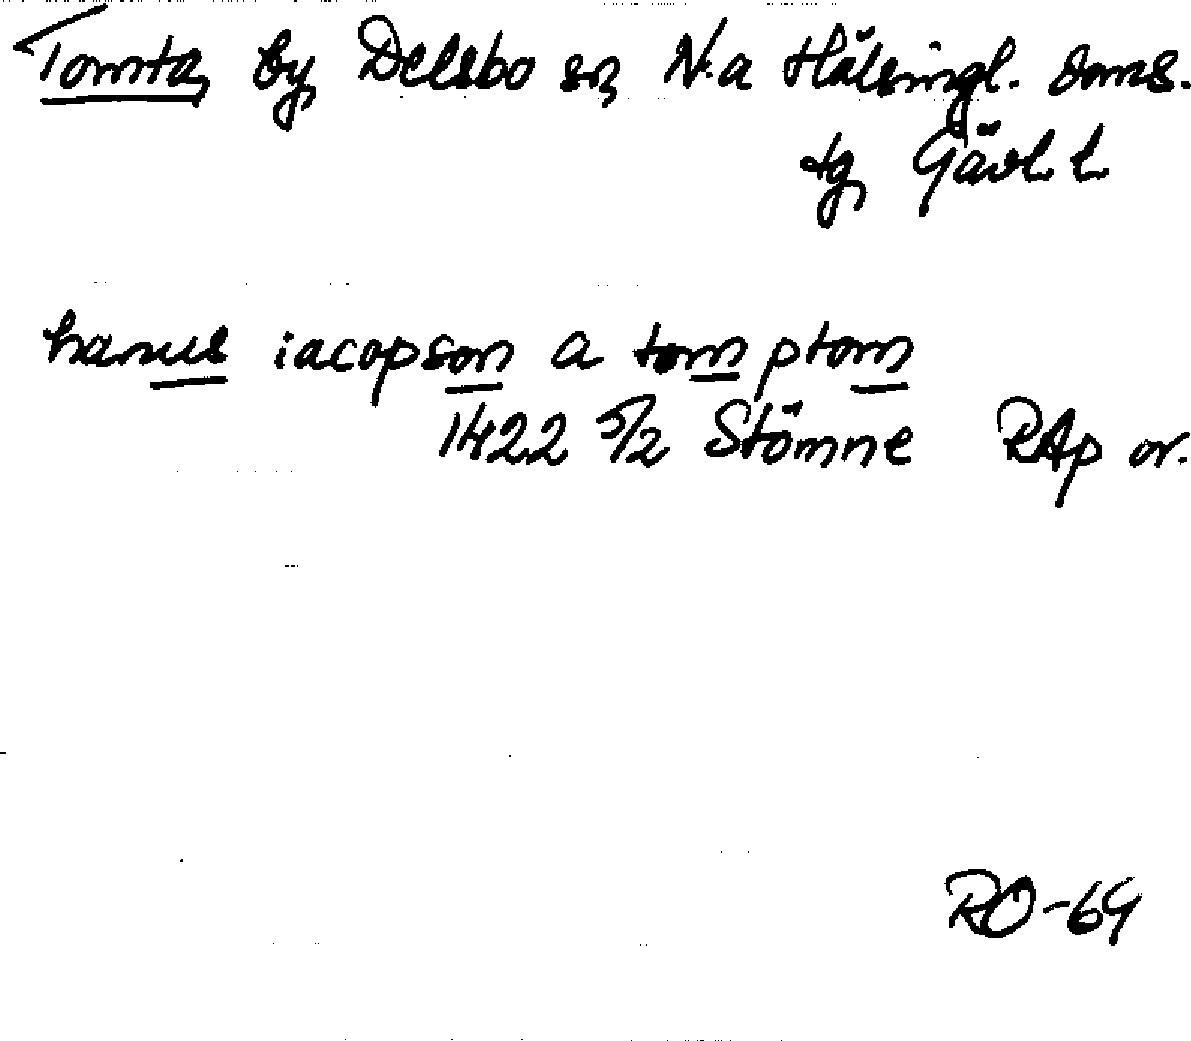 Tomta, by, Delsbo sn, N:a Hälsingl. doms.
tg, Gävl. l.
hanus iacopson a tom ptom
1422 5/2 Stömne RAp or.
RO-69